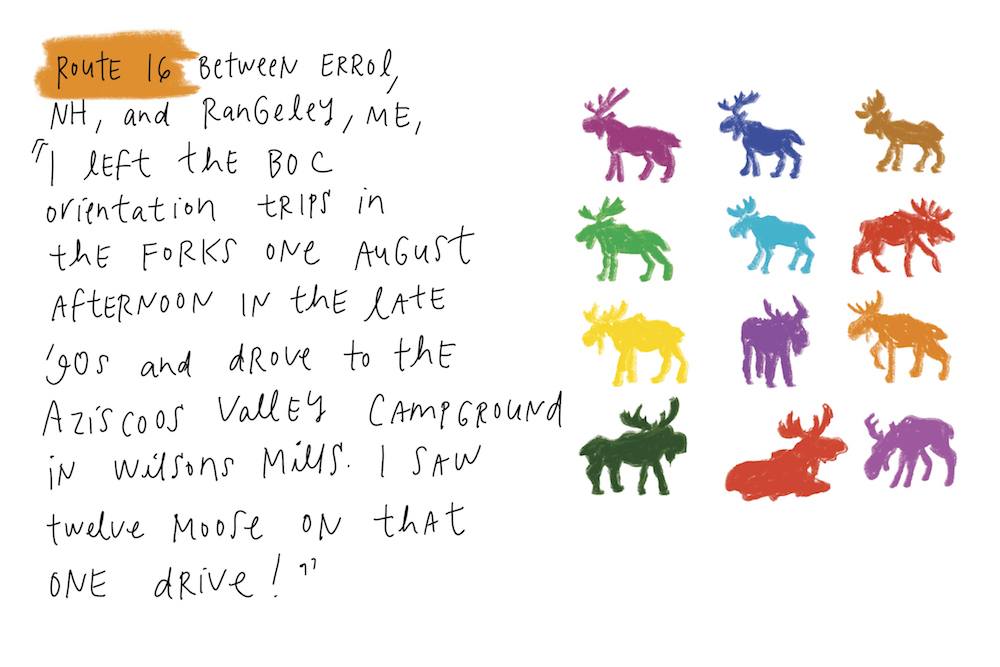 ROUTE 16 BETWEEN ERROL,
NH, and RanGeley, ME,
"I left the BOC
orientation TRIPS in
the FORKS ONE AUGUST
AFTERNOON IN the LATE
'90s and dROVE to thE
AZISCOOS VALLEY CAMPGROUNd
in Wilsons Mills. I SAW
twelve MOOSE ON thAT
ONE dRIVE!"